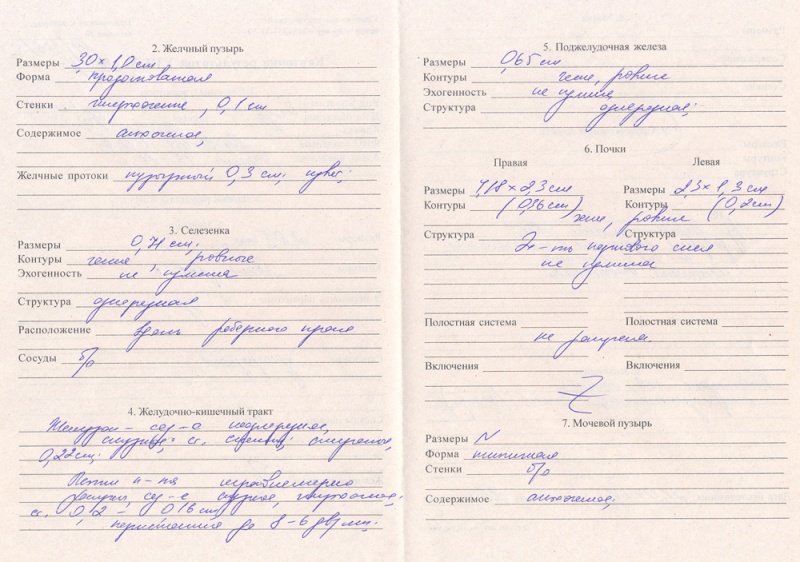 2. Желчный пузырь
Размеры 3,0 × 1,0 см
Форма продолговатая
Стенки 0,1 см
Содержимое анэхогенное,
Желчные протоки пузырный 0,3 см;
3. Селезенка
Размеры 0,71 см;
Контуры ровные
Эхогенность не изменена
Структура однородная
Расположение вдоль реберного края
Сосуды б/о
4. Желудочно-кишечный тракт
Желудок – сод-е неоднородное,
0,22 см;
Петли к-ка неравномерно
сод-е
ст. 0,12 – 0,16 см,
до 8–6 дв/мин.
5. Поджелудочная железа
Размеры 0,65 см
Контуры четкие, ровные
Эхогенность не изменена
Структура однородная;
6. Почки
Правая Левая
Размеры × 2,3 см Размеры 2,3 × 1,3 см
Контуры (0,36 см) Контуры (0,2 см)
четкие, ровные
Структура Структура
Эх-ть коркового слоя
не изменена
Полостная система Полостная система
не расширена.
Включения Включения
7. Мочевой пузырь
Размеры N
Форма типичная
Стенки б/о
Содержимое анэхогенное,